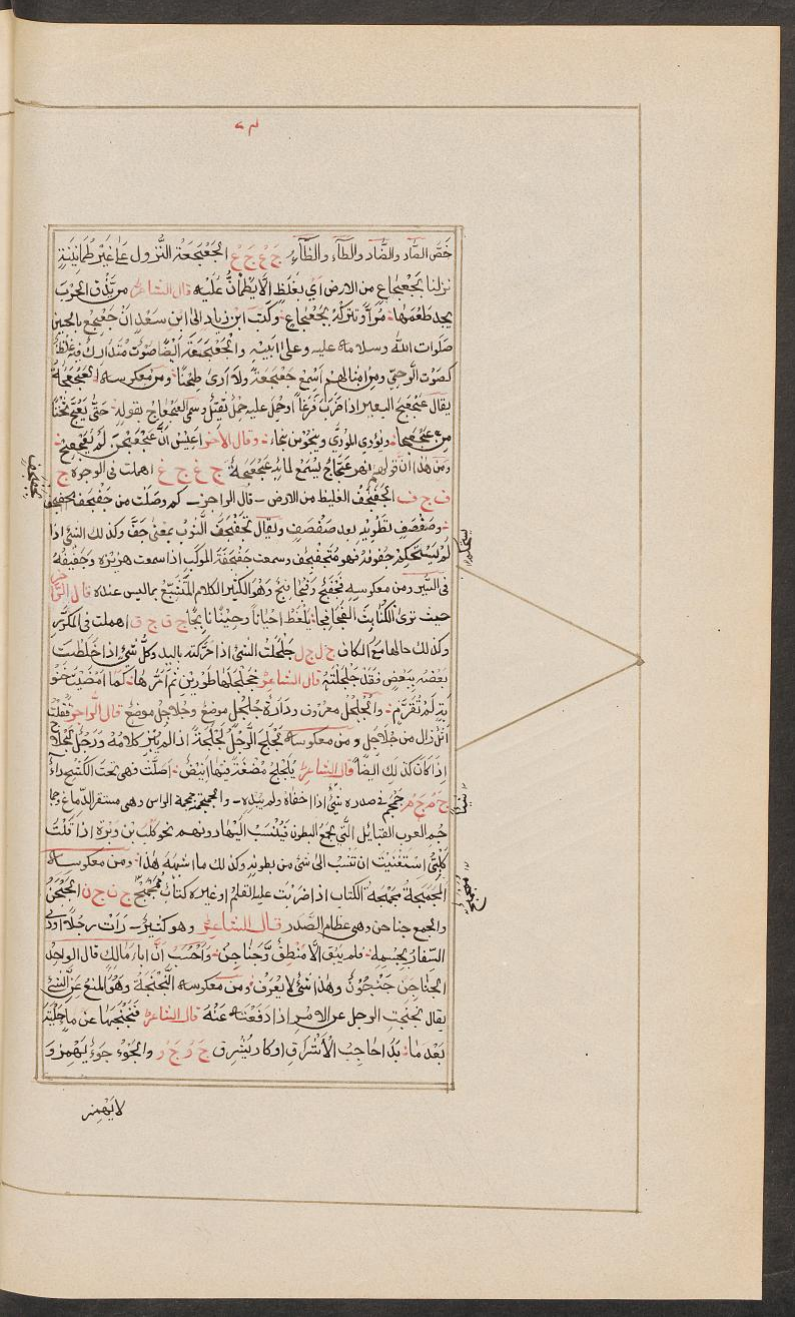 خَصَّ الصَّاد والضَّاد والطَّاء والظَّاء ج ع ج ع الجَعْجَعَة النُّزول على غَيْرِ طُمَانِينَةٍ
نزلنا بجَعْجَاعٍ من الارض اَي بغِلَظٍ لا يَطْمَانُّ عَلَيْه قال الشاعر من يَذُق الحَرْبَ
يجد طعمها مُرًّا وتتركْهُ بجَعْجَاعٍ وكتب ابن زياد الى ابن سَعْدٍ انْ جَعْجِعْ بالحسين
صلوات الله وسلامه عليه وعلى ابيه والجَعْجَعَة اَيْضًا صَوْت مُتَدارِك فيه غِلَظٌ
كصَوْت الرَّحِيّ ومن امثالهم اَسْمَع جَعْجَعَةً ولا اَرَى طِحْنًا ومن معكوسه العَجْعَجَة
يقال عَجْعَجَ البعير اذا ضُرِبَ فرَغَا اوحُمِلَ عليه حِمْل ثقيل وسمى العَجَّاج بقوله حَتَّى يَعُجَّ ثَخَنًا
من عَجْعَجا ويُودِى المُودِى وينجو من نجا وقال الآخر
ومن هذا انّ قولهم نهر عَجَّاج يُسْمَع لمائه عَجْعَجَة ج غ ج غ اهملت فى الوجوه ج
ف ج ف الجَفْجَف الغليظ من الارض قال الراجز كم وصَلَت من جَفْجَف بجفجف
وصَفْصَفٍ تطويه بعد صَفْصَفٍ ويقال تَجَفْجَفَ الثَّوبُ بمعنى جَفَّ وكذلك الشئ اذا
لم يَسْتَحْكِمْ جفوفه فهو مُتَجَفْجِف وسمعت جَفْجَفَة الموكِب اذا سمعت هزيزه وحَفيفه
فى السَّير ومن معكوسه فَجْفَجَ وفَجْفاج وهو الكثير الكلام المُتَشَبِّع بما ليس عنده قال الراجز
ج ق ج ق اهملت فى المكرّر
وكذلك حالها مع الكاف ج ل ج ل جَلْجَلْتُ الشئ اذا حَرّكته باليد وكلّ شئ اذا خَلَطْتَ
بَعْضَه ببَعْضٍ فَقَدْ جَلْجَلْتَهُ قال الشاعر فجَلْجَلَها طَوْرَيْن ثم اَمَرّها كما
لَمْ تُقَرَّمِ والجُلْجُل معروف ودَارَة جُلْجُل موضع وجُلاجل موضع قال الراجز فقُلْت
ومن معكوسه لَجْلَجَ الرَّجلُ لَجْلَجَةً اذا لم يُبَيِّن كلامَه ورَجُل لَجْلاج
اذا كان كذلك ايضًا قال الشاعر يُلَجْلِجُ مُضْغَةً فيها اَنِيضٌ اَصَلَّت فهى تحت الكَشْحِ داءُ
ج م ج م جَمْجَمَ فى صدره شيئًا اذا اخفاه ولم يُبْدِه والجمجمة جمجمة الراس وهى مستقرّ الدّماغ وجما
جم العرب القبايل الَّتى تجمع البطون فيُنْسَب اليها دونهم نحو كَلْب بن وَبْرة اذا قُلْتَ
كَلْبِىّ اسْتَغْنَيْتَ ان تَنْسُب الى شئ من بطونه وكذلك ما اشبه هذا ومن معكوسه
المَجْمَجَة مَجْمَجَة الكتاب اذا ضَرَبْتَ عليه القلم اوغيره كتاب مُمَجْمَج ج ن ج ن الجَنْجَنُ
والجمع جناجن وهى عظام الصَّدر قال الشاعر وهو كثير رَاَت رجُلًا اودى
السِّفار بجِسْمه فلم يَبْقَ الّا مَنْطِقٌ وجَناجِنُ وَاَحْسَب اَنّ ابا مالك قال الواحد
الجَناجِن جَنْجون وهذا شئ لا يعرف ومن معكوسه النَّجْنَجَة وهو المَنْع عن الشئ
يقال نَجْنَجت الرجل عن الامر اذا دَفَعْتَه عَنْهُ قال الشاعر فنَجْنَجَها عن ماء حَلْيَةَ
بَعْدَ ما بَدَا حاجِبُ الْاَشْرَاقِ اوكاد يُشْرِق ج و ج و والجُؤجُؤ يَهْمِز و
لا يَهْمِز